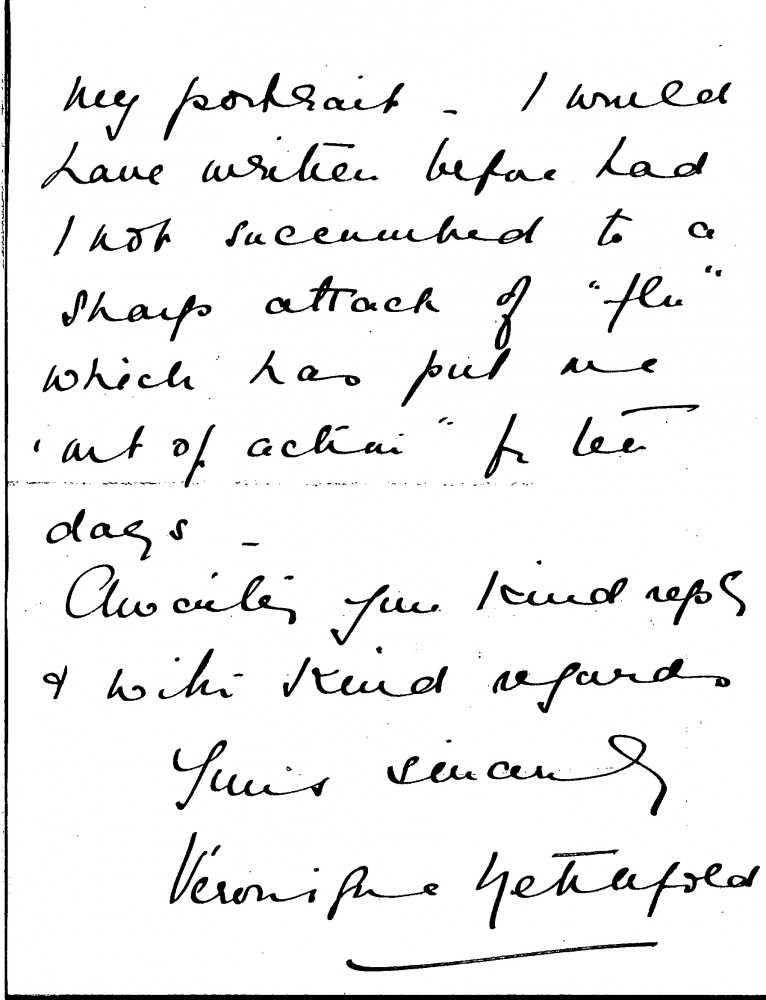 my portrait - I would
have written before had
I not succumbed to a
sharp attack of "flu"
which has put me
'out of action" for ten
days -
Awaiting your kind reply
& with kind regards
Yours sincerely
Véronique Nettlefold